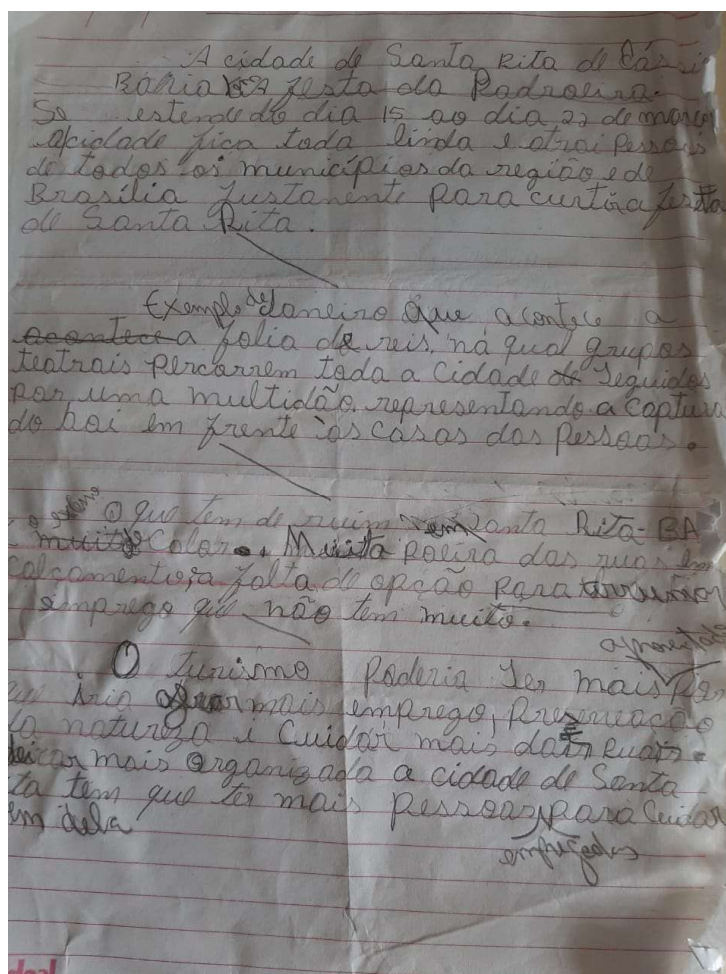 A cidade de Santa Rita de Cássi
Bahia a festa da Padroeira.
Se estende do dia 15 ao dia 22 de março
a cidade fica toda linda e atrai Pessoas
de todos os municípios da região e de
Brasília Justanente para curtir a festa
de Santa Rita.
Exemplo de Janeiro que acontece a
acontece a folia de reis, na qual grupos
teatrais percorrem toda a Cidade Seguidos
por uma multidão, representando a captura
do boi em frente às casas das Pessoas.
O que tem de ruim em Santa Rita-BA
muito Calor, Muita poeira das ruas em
calçamento, a falta de opção para arrumar
emprego que não tem muito.
O turismo Poderia Ser mais
iria gerar mais emprego, Preservação
da natureza e Cuidar mais das Ruas.
deixar mais organizada a cidade de Santa
ta tem que ter mais pessoas para Cuidar
em dela
empregadas
deal